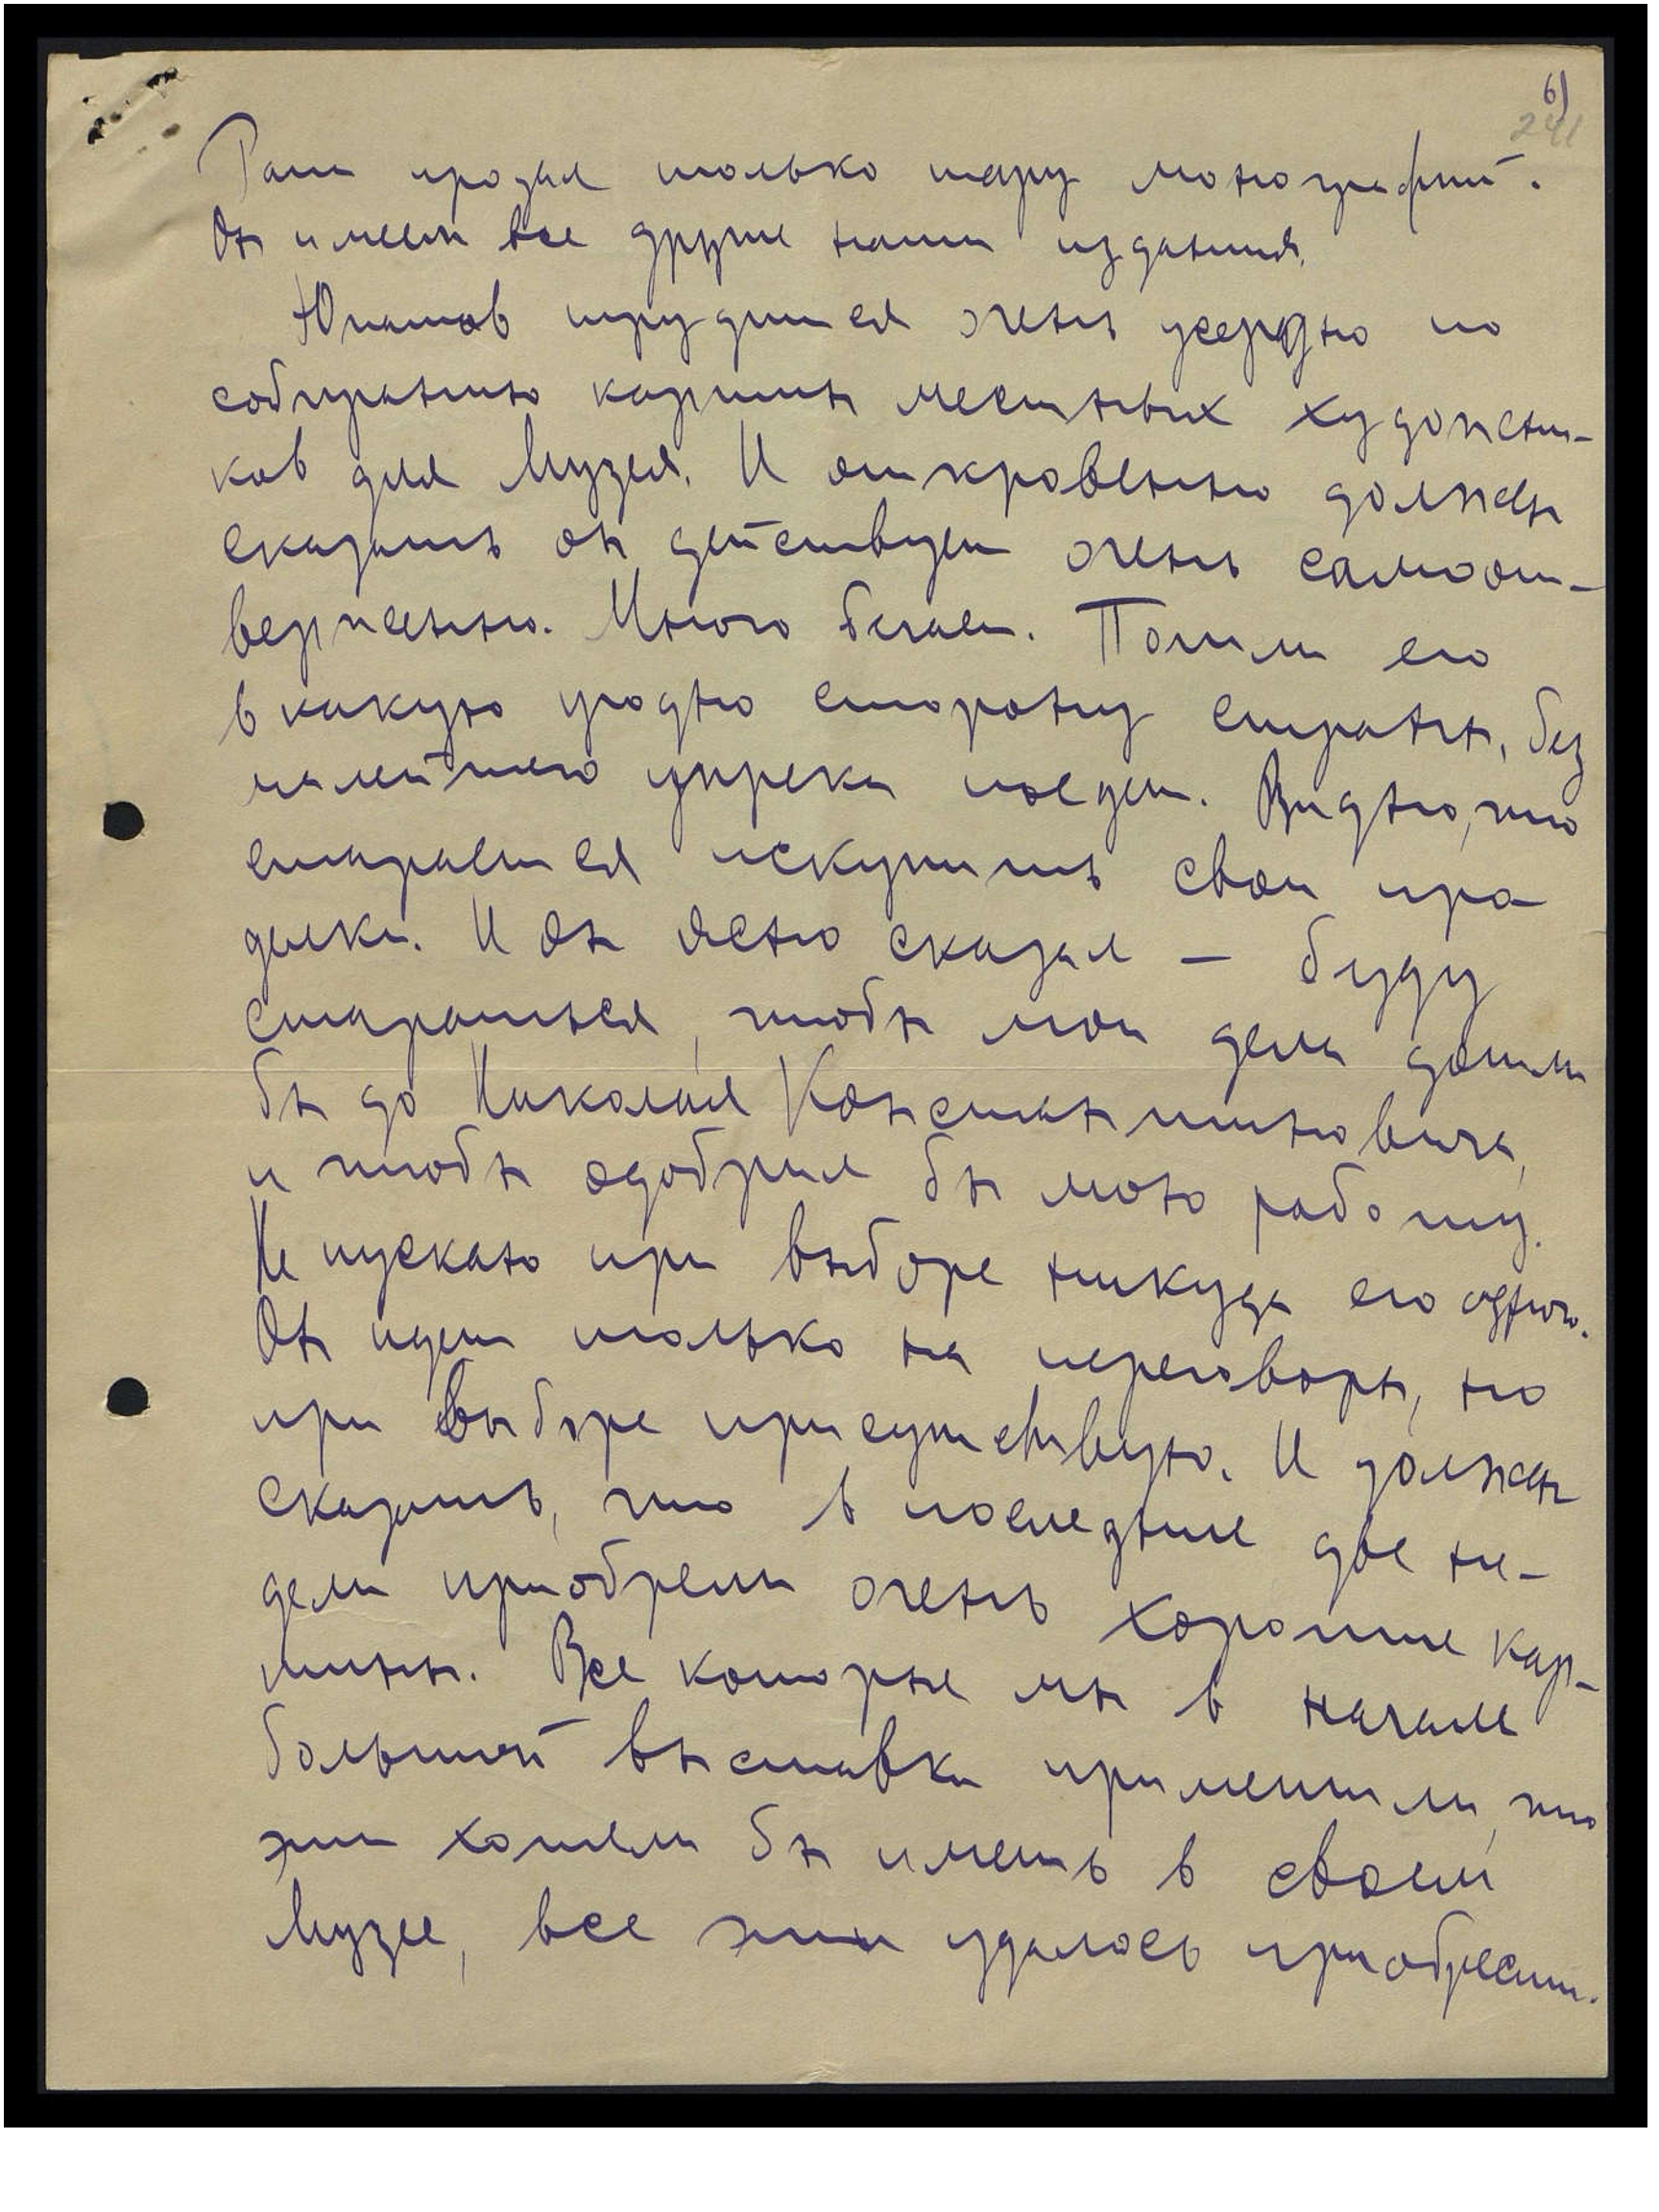 6)
241
Гот продал только пару монографий.
Он имеет все другие наши издания.
Юпатов трудится очень усердно по
собиранию картин местных художни-
ков для Музея. И откровенно должен
сказать он действует очень самоот-
верженно. Много бегает. Пошли его
в какую угодно сторону страны, без
малейшего упрека поедет. Видно, что
старается искупить свои про
делки. И он ясно сказал — буду
стараться, чтобы мои дела дошли
бы до Николая Константиновича,
и чтобы одобрил бы мою работу.
Не пускаю при выборе никуда его одного.
Он идет только на переговоры, но
при выборе присутствую. И должен
сказать, что в последние две не-
дели приобрели очень хорошие кар-
тины. Все которые мы в начале
большой выставки приметили, что
эти хотели бы иметь в своем
Музее, все эти удалось приобрести.